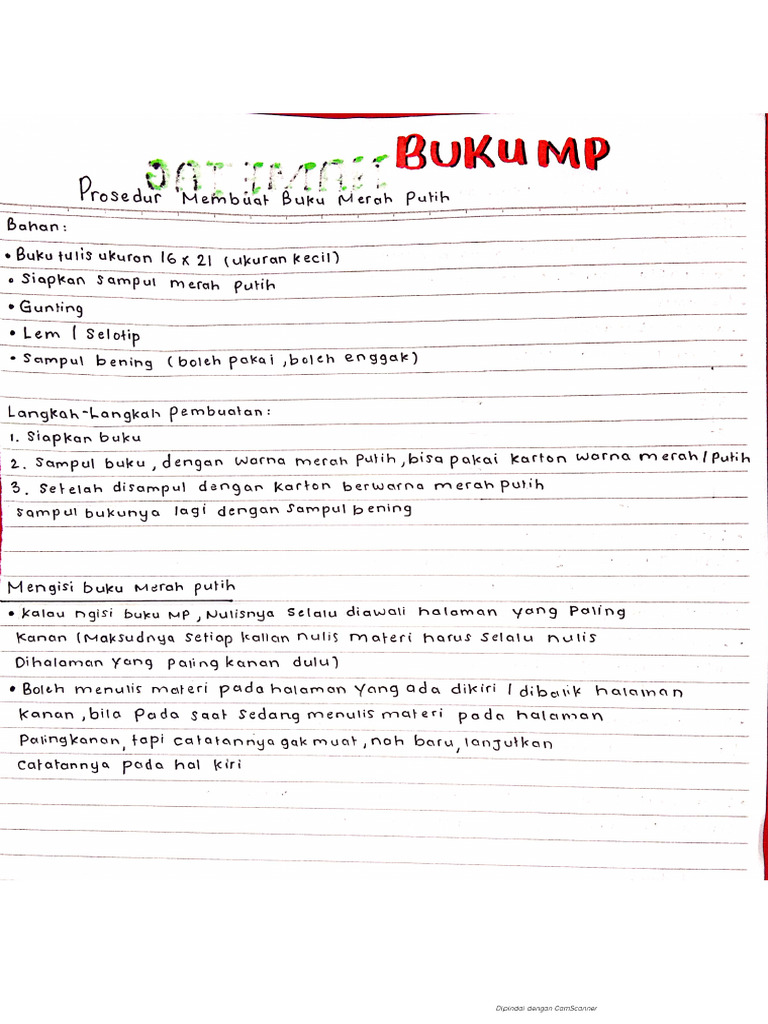 BUKU MP
Prosedur Membuat Buku Merah Putih
Bahan:
• Buku tulis ukuran 16 x 21 (ukuran kecil)
• Siapkan sampul merah putih
• Gunting
• Lem / Selotip
• Sampul bening (boleh pakai, boleh enggak)
Langkah-Langkah Pembuatan:
1. Siapkan buku
2. Sampul buku, dengan warna merah putih, bisa pakai karton warna merah/putih
3. Setelah disampul dengan karton berwarna merah putih
sampul bukunya lagi dengan sampul bening
Mengisi buku Merah putih
• Kalau ngisi buku MP, Nulisnya selalu diawali halaman yang paling
kanan (Maksudnya setiap kalian nulis materi harus selalu nulis
Dihalaman yang paling kanan dulu)
• Boleh menulis materi pada halaman yang ada dikiri / dibalik halaman
kanan, bila pada saat sedang menulis materi pada halaman
Palingkanan, tapi catatannya gak muat, nah baru, lanjutkan
Catatannya pada hal kiri
Dipindai dengan CamScanner